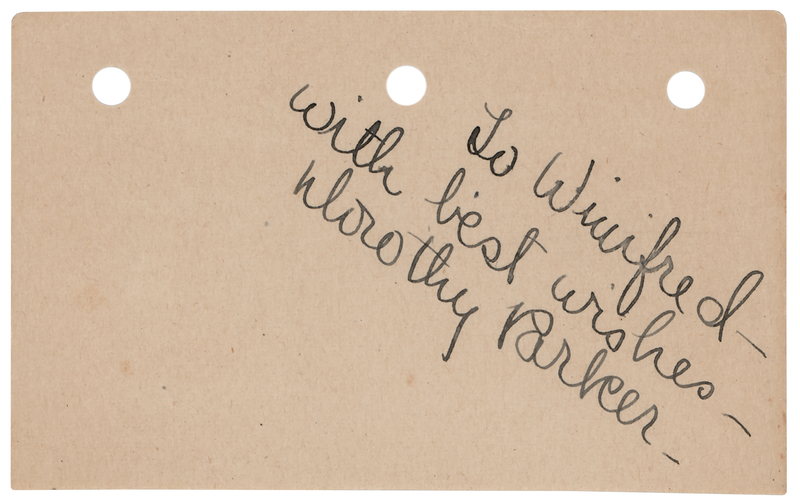 To Winifred-
with best wishes-
Dorothy Parker-